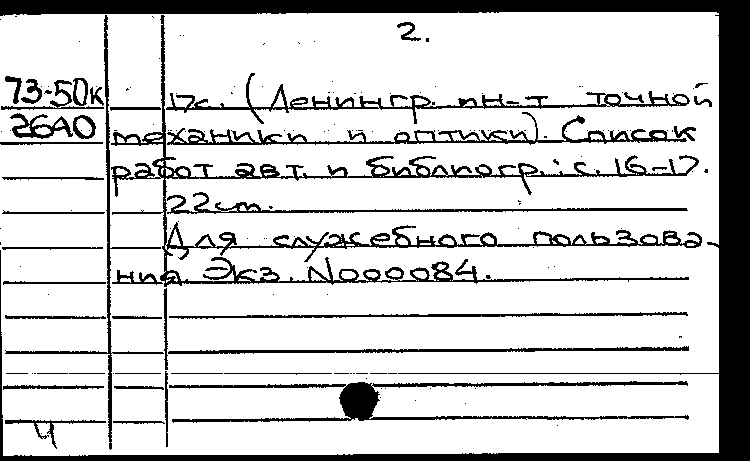 2.
73-50к 17с. (Ленингр. ин-т точной
26АО механики и оптики). Список
работ авт. и библиогр.: с. 16-17.
22ст.
Для служебного пользова-
ния. Экз. N000084.
Ч